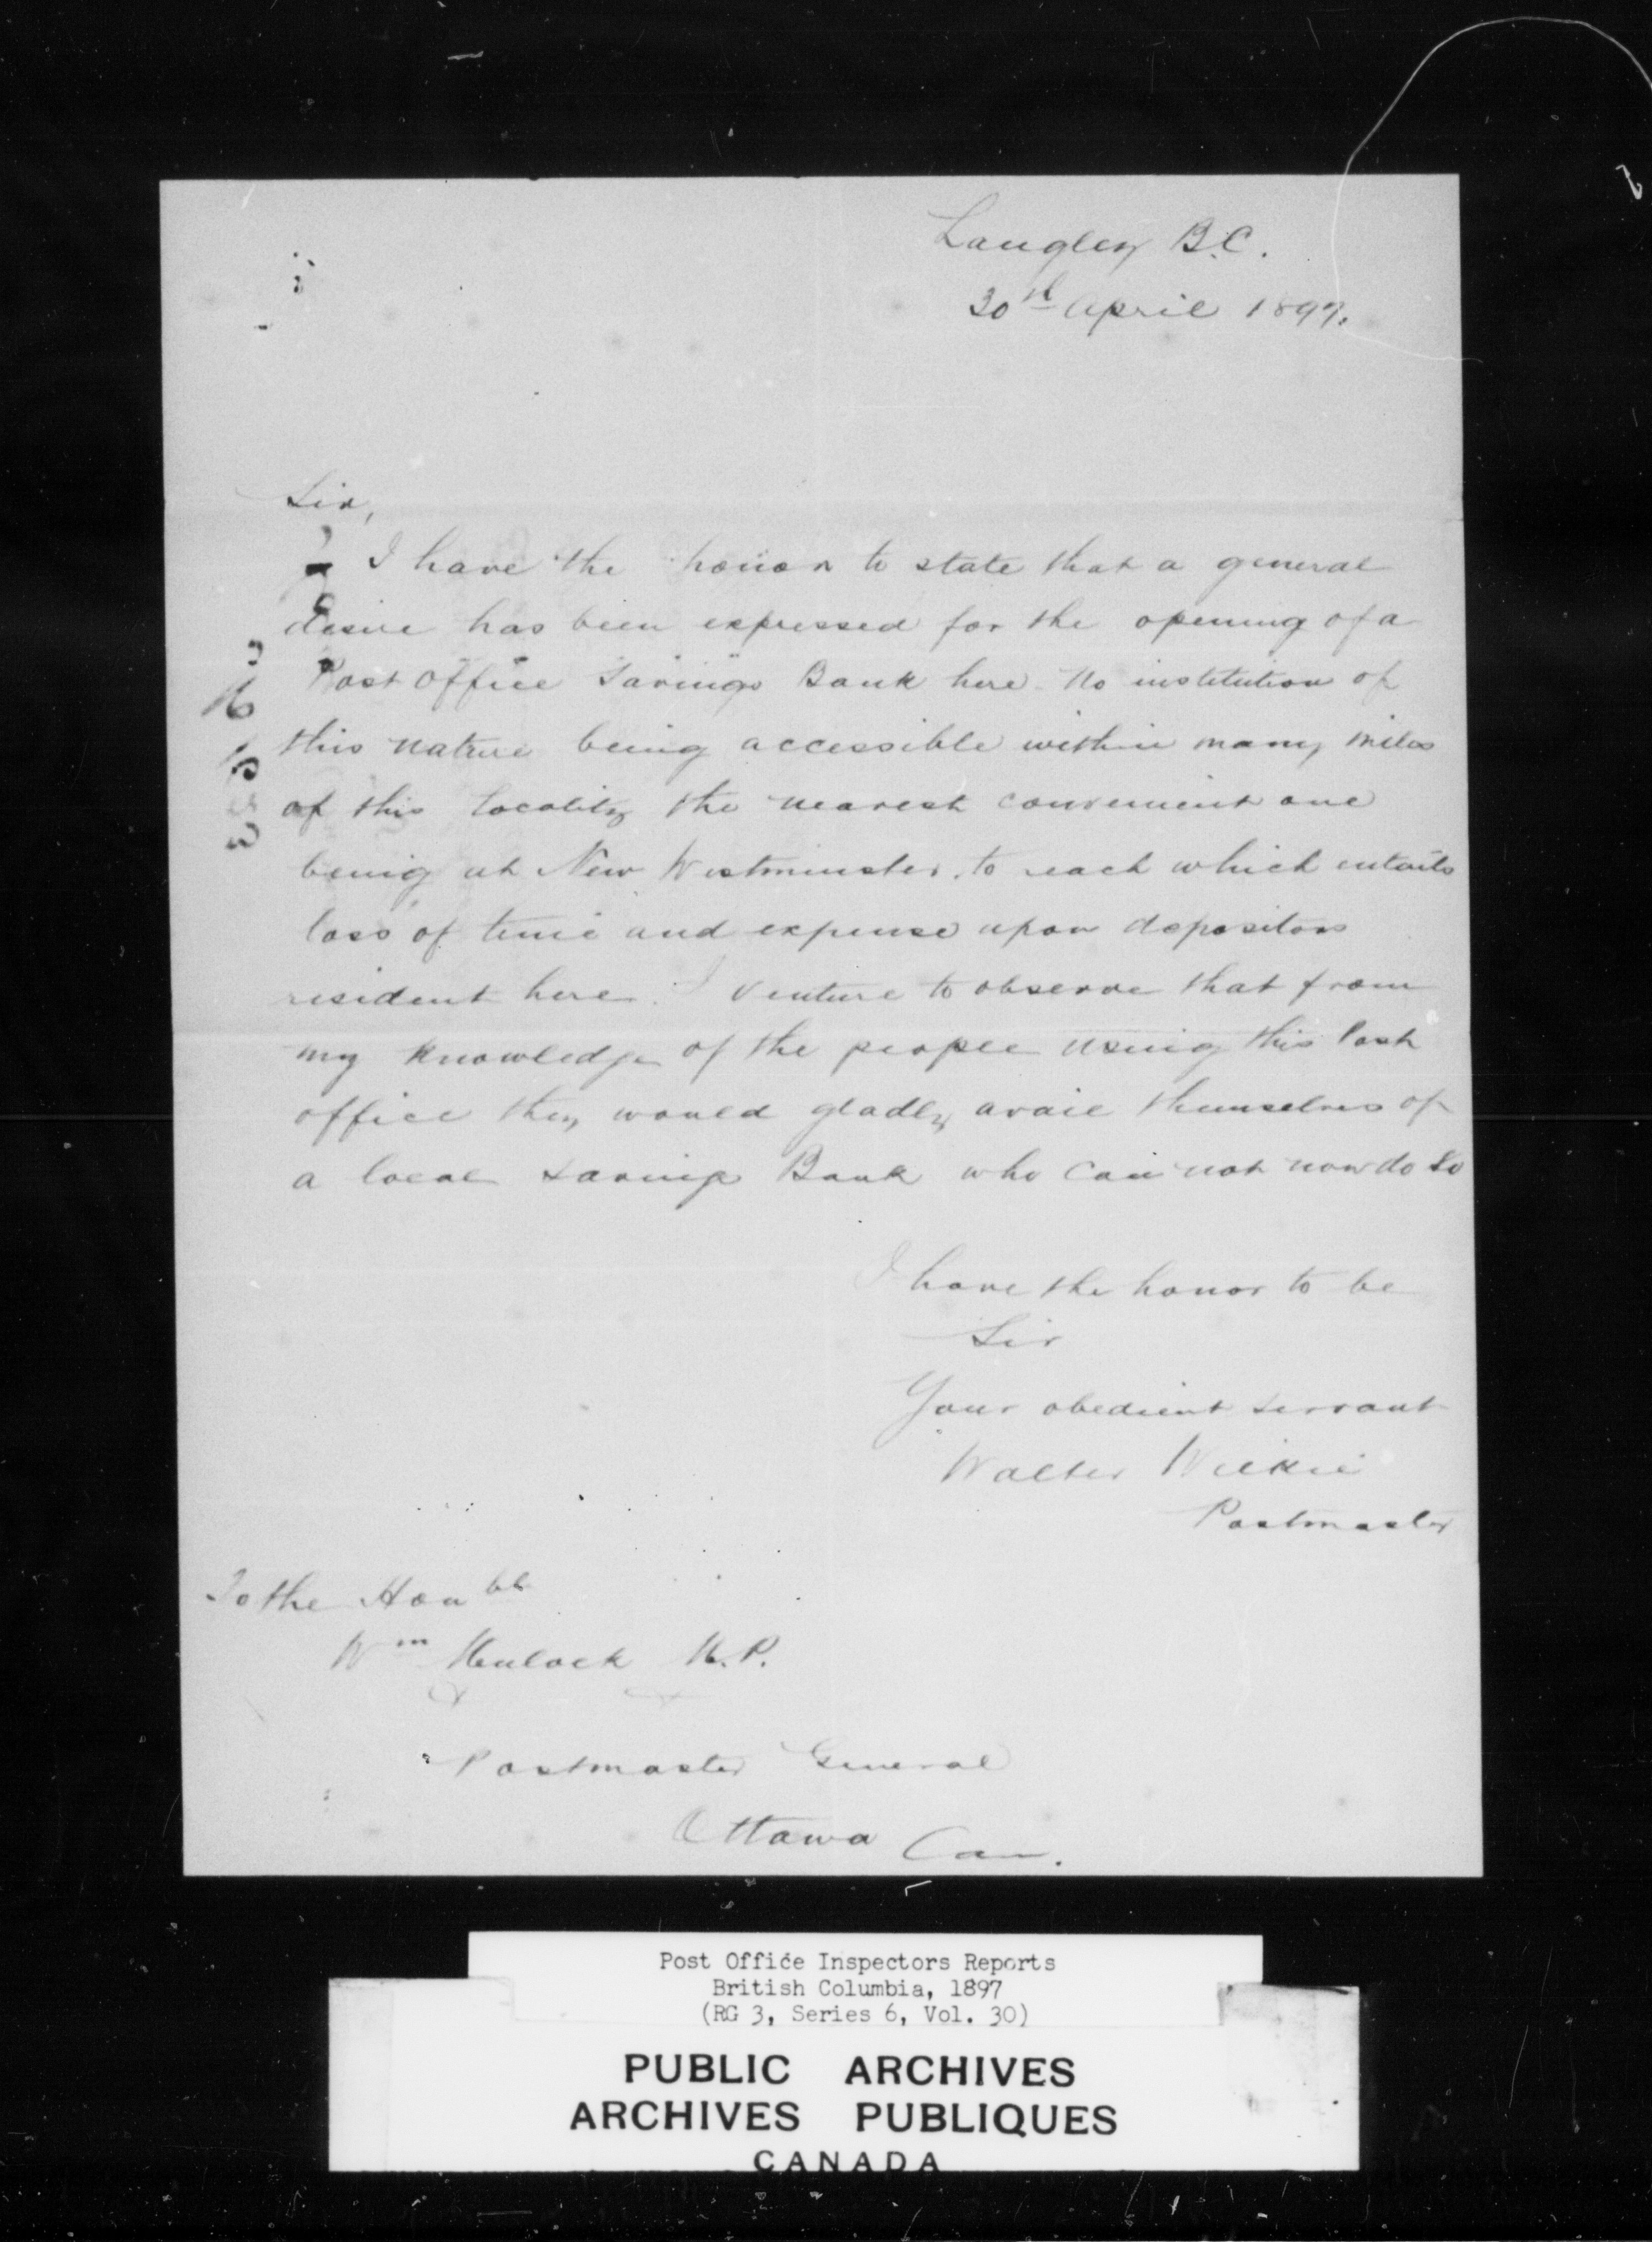 Langley B.C.
30th April 1897.
Sir,
I have the honor to state that a general
desire has been expressed for the opening of a
Post Office Savings Bank here. No institution of
this nature being accessible within many miles
of this locality the nearest convenient one
being at New Westminster, to reach which entails
loss of time and expense upon depositors
resident here. I venture to observe that from
my knowledge of the people using this Post
office they would gladly avail themselves of
a local savings Bank who can not now do so
I have the honor to be
Sir
Your obedient servant
Walter Wilkie
Postmaster
To the Honble
Wm Mulock M.P.
Postmaster General
Ottawa Can.
Post Office Inspectors Reports
British Columbia, 1897
(RG 3, Series 6, Vol. 30)
PUBLIC ARCHIVES
ARCHIVES PUBLIQUES
CANADA